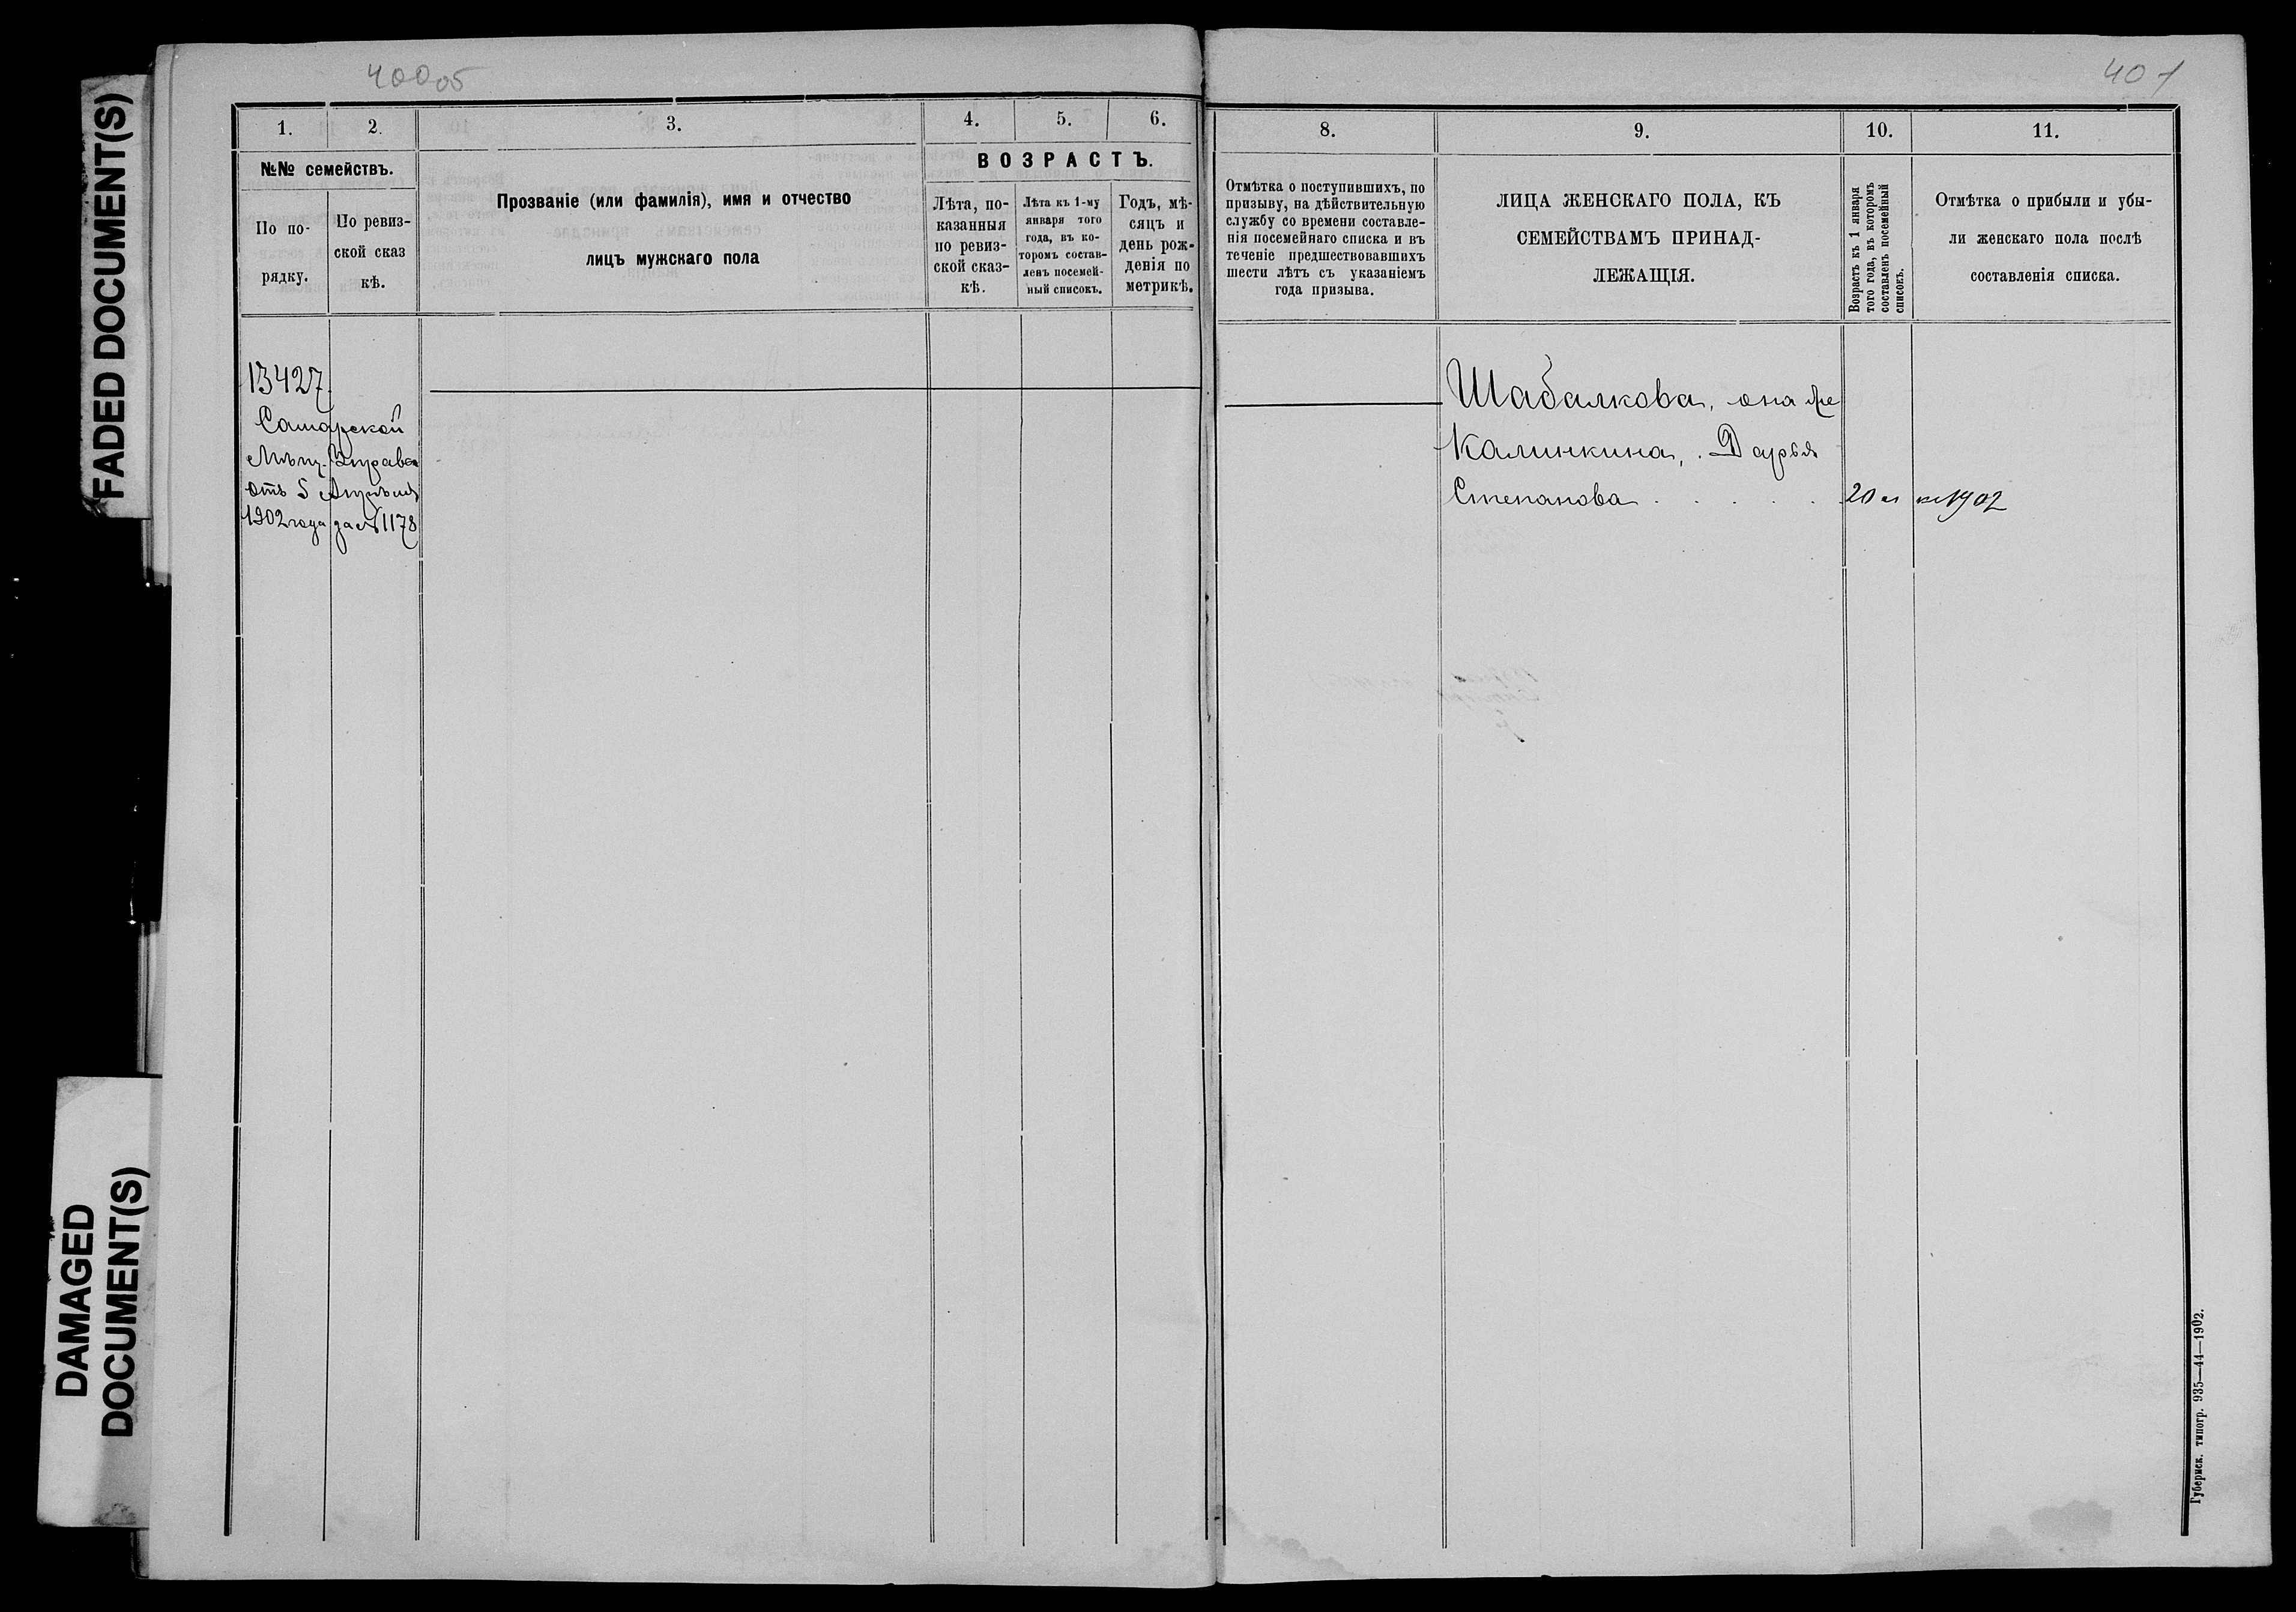 FADED DOCUMENT(S)
DAMAGED
DOCUMENT(S)
400об
1.
2.
3.
4.
5.
6.
№№ семействъ.
По по-
рядку.
По ревиз-
ской сказ
кѣ.
Прозваніе (или фамилія), имя и отчество
лицъ мужскаго пола
ВОЗРАСТЪ.
Лѣта, по-
казанныя
по ревиз-
ской сказ-
кѣ.
Лѣта къ 1-му
января того
года, въ ко-
торомъ состав-
ленъ посемей-
ный списокъ.
Годъ, мѣ-
сяцъ и
день рож-
денія по
метрикѣ.
13427
Самарской
Мѣщ. Управы
отъ 5 Апрѣля
1902 года за № 1178
401
8.
9.
10.
11.
Отмѣтка о поступившихъ, по
призыву, на дѣйствительную
службу со времени составле-
нія посемейнаго списка и въ
теченіе предшествовавшихъ
шести лѣтъ съ указаніемъ
года призыва.
ЛИЦА ЖЕНСКАГО ПОЛА, КЪ
СЕМЕЙСТВАМЪ ПРИНАД-
ЛЕЖАЩІЯ.
Возрастъ къ 1 января
того года, въ которомъ
составленъ посемейный
списокъ.
Отмѣтка о прибыли и убы-
ли женскаго пола послѣ
составленія списка.
Шабалкова, она же
Калинкина, Дарья
Степанова . . . . . 20 л къ 1902
Губернск. типогр. 935—44—1902.